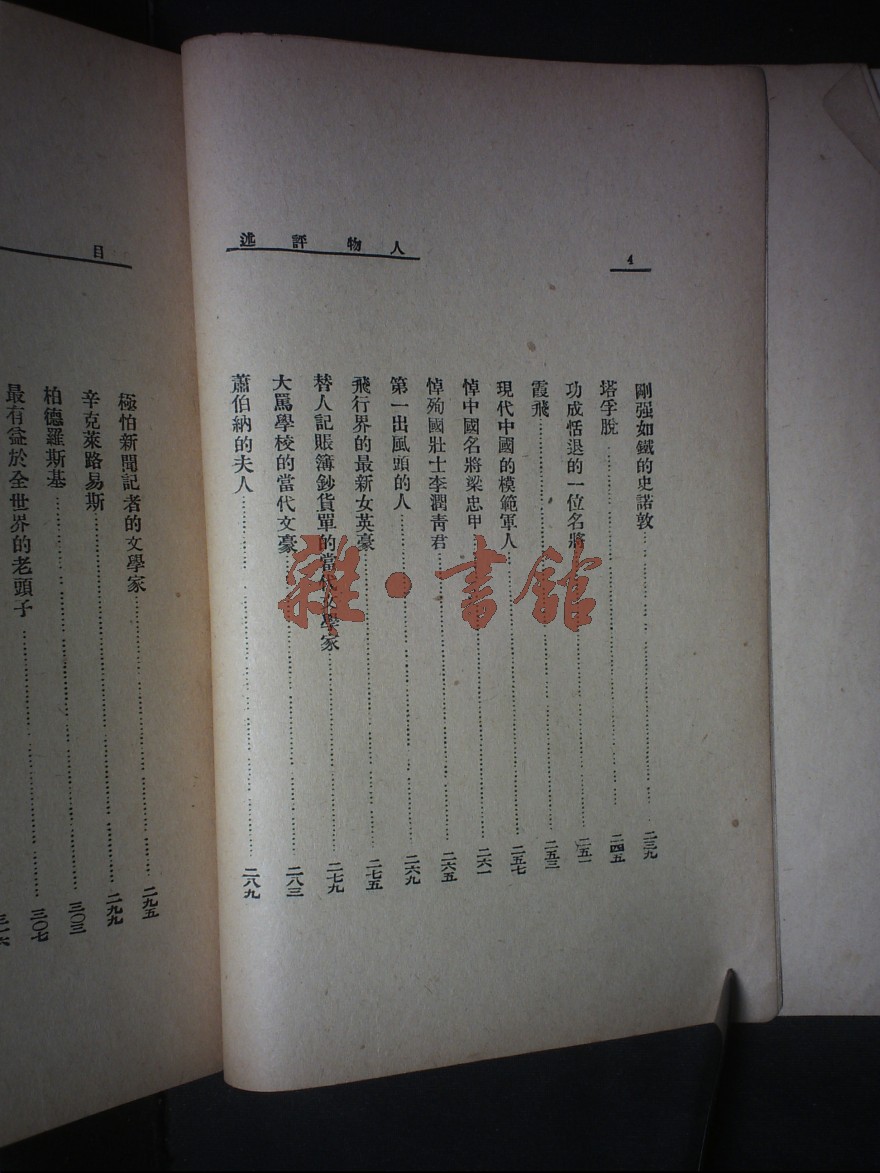 人物評述
4
剛强如鐵的史諾敦……二三九
塔孚脫……二四五
功成恬退的一位名將……二五一
霞飛……二五三
現代中國的模範軍人……二五七
悼中國名將梁忠甲……二六一
悼殉國壯士李潤青君……二六五
第一出風頭的人……二六九
飛行界的最新女英豪……二七五
替人記賬簿鈔貨單的當代文學家……二七九
大罵學校的當代文豪……二八三
蕭伯納的夫人……二八九
目
極怕新聞記者的文學家……二九五
辛克萊路易斯……二九九
柏德羅斯基……三〇三
最有益於全世界的老頭子……三〇七
雜·書館